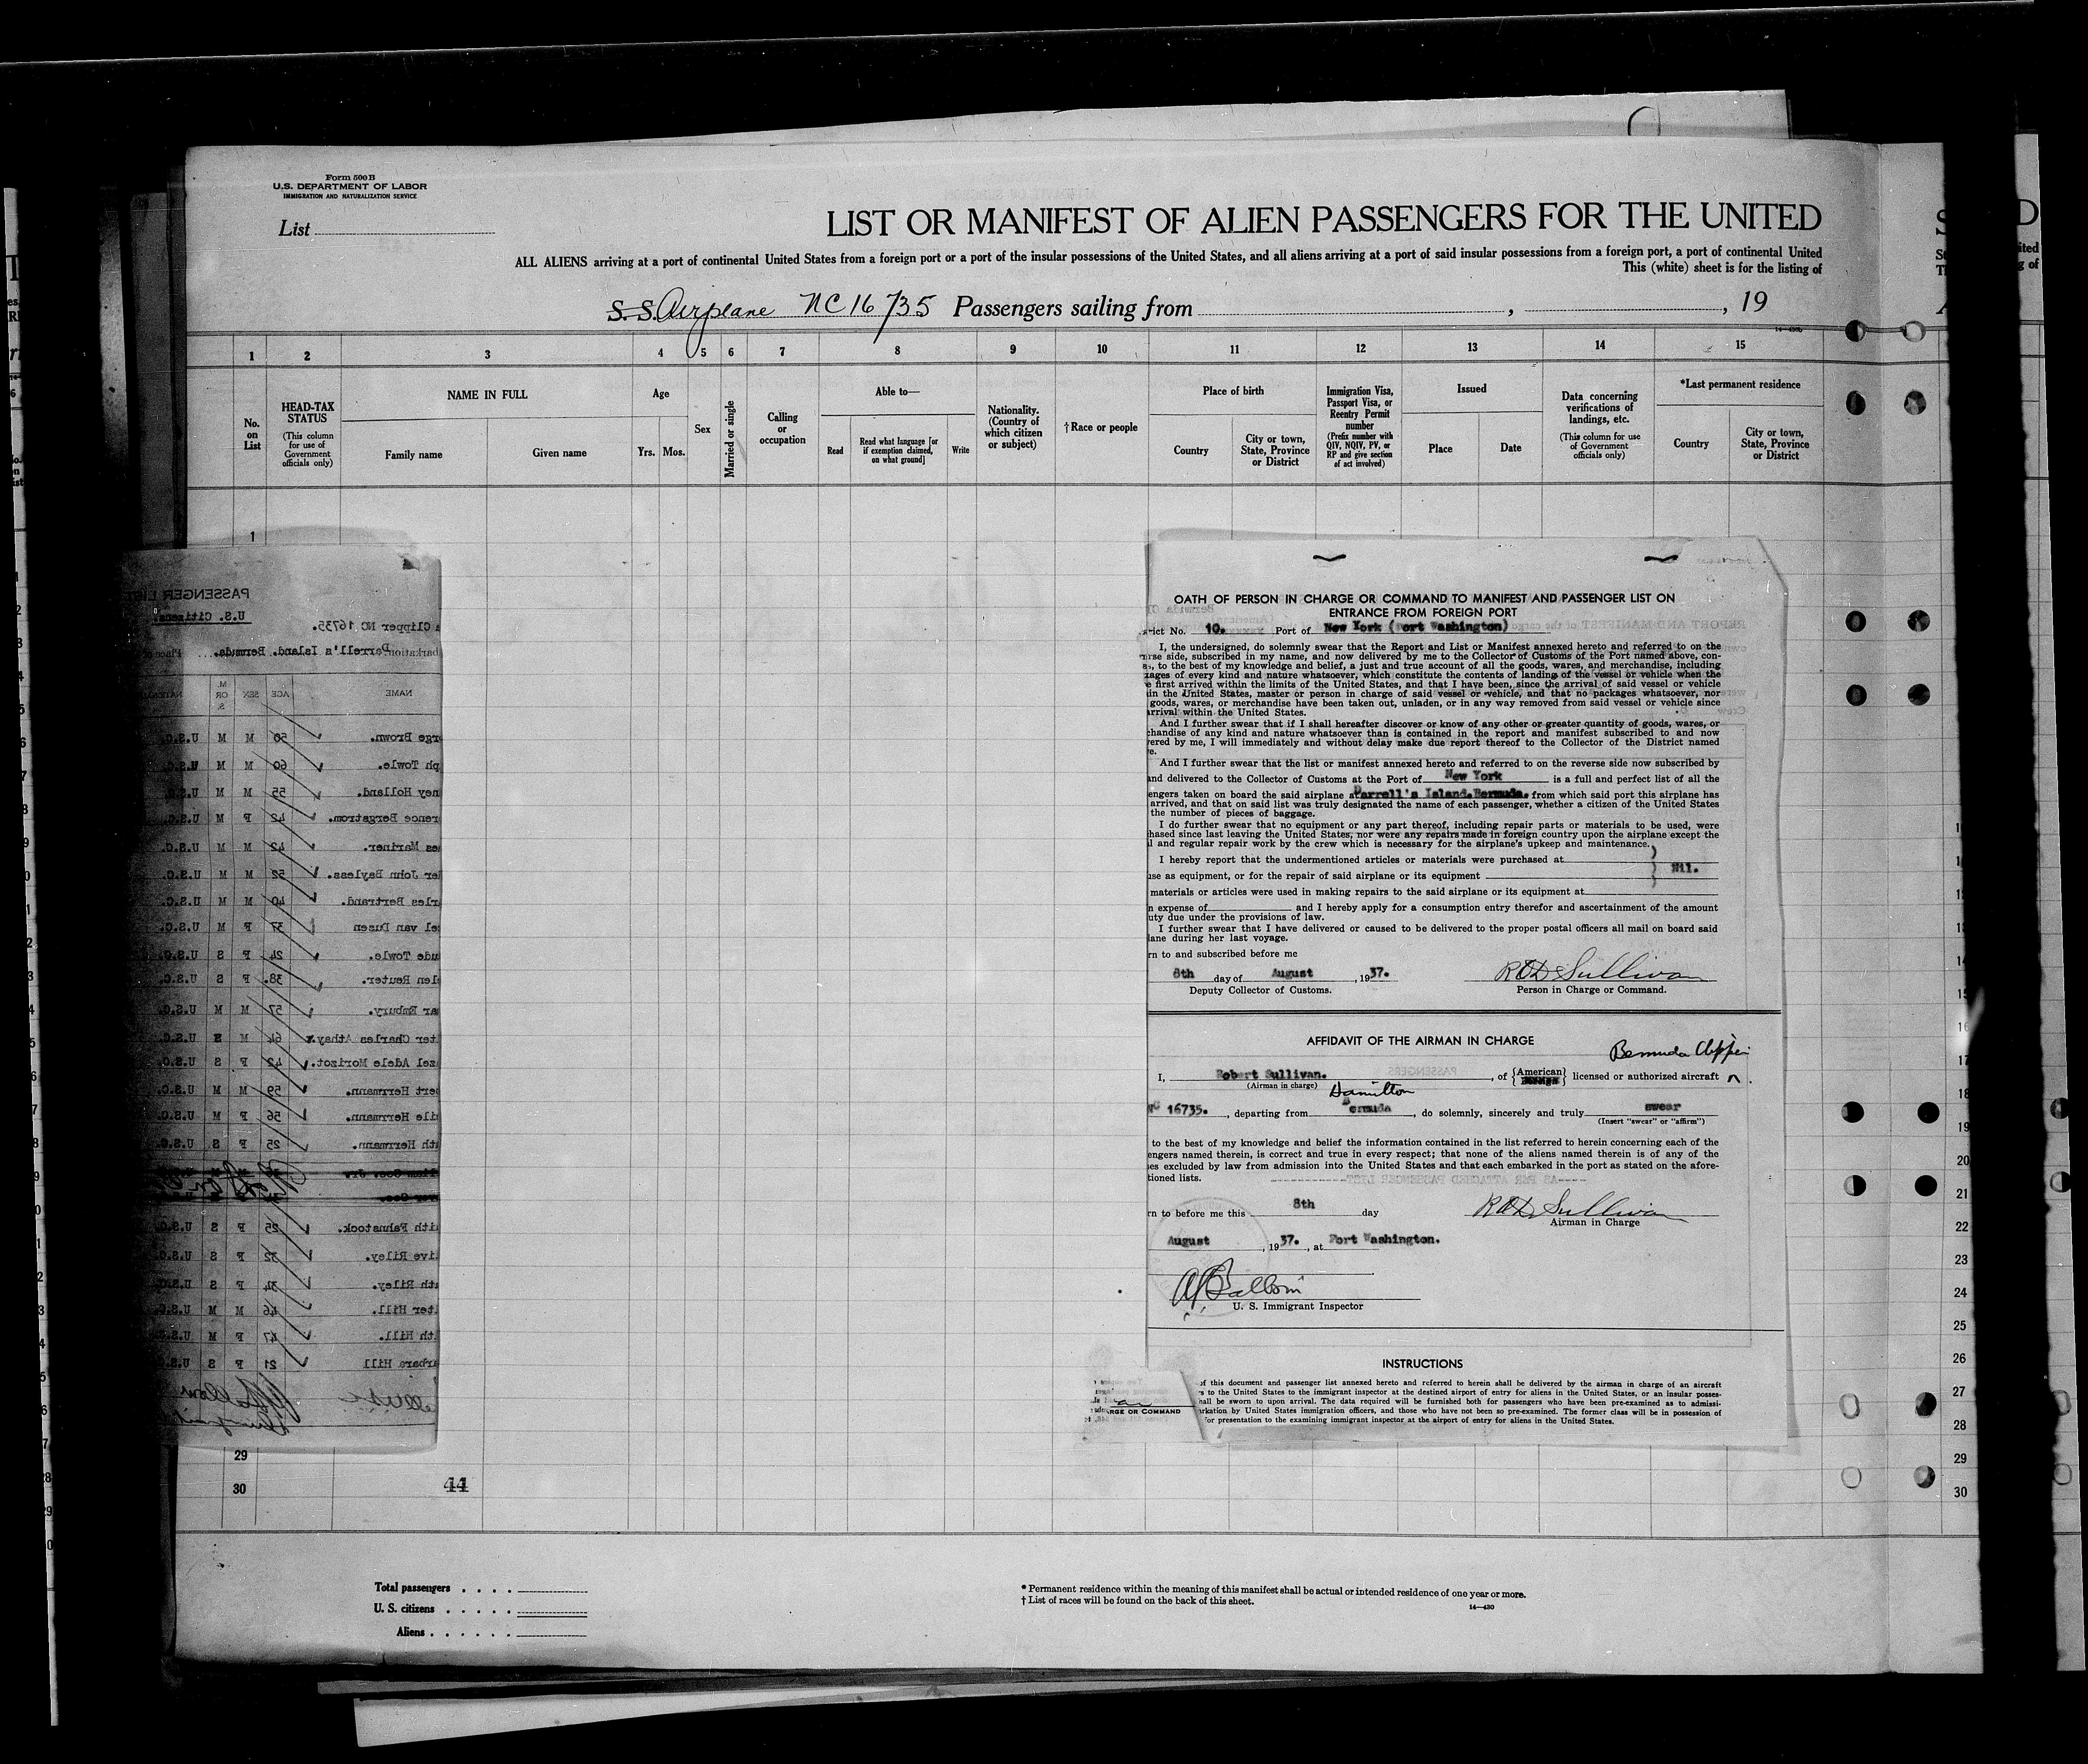 Form 500B
U.S. DEPARTMENT OF LABOR
IMMIGRATION AND NATURALIZATION SERVICE
List
LIST OR MANIFEST OF ALIEN PASSENGERS FOR THE UNITED
ALL ALIENS arriving at a port of continental United States from a foreign port or a port of the insular possessions of the United States, and all aliens arriving at a port of said insular possessions from a foreign port, a port of continental United
This (white) sheet is for the listing of
S. S. Airplane NC 16735 Passengers sailing from , , 19
14—430b
1 2 3 4 5 6 7 8 9 10 11 12 13 14 15
No. on List
HEAD-TAX STATUS
(This column for use of Government officials only)
NAME IN FULL
Family name Given name
Age
Yrs. Mos.
Sex
Married or single
Calling or occupation
Able to—
Read
Read what language [or if exemption claimed, on what ground]
Write
Nationality. (Country of which citizen or subject)
†Race or people
Place of birth
Country
City or town, State, Province or District
Immigration Visa, Passport Visa, or Reentry Permit number
(Prefix number with QIV, NQIV, PV, or RP and give section of act involved)
Issued
Place Date
Data concerning verifications of landings, etc.
(This column for use of Government officials only)
*Last permanent residence
Country
City or town, State, Province or District
1
PASSENGER LIST
U.S. Citizens.
Clipper NC 16735.
barkation Darrell's Island. Bermuda. Place of
NAME AGE SEX M. OR S.
rge Brown. 50 M M U.S.C.
ph Towle. 60 M M U.S.C.
ney Holland. 55 M M U.S.C.
rence Bergstrom. 42 F M U.S.C.
es Mariner. 42 M M U.S.C.
er John Bayless. 52 M M U.S.C.
rles Bertrand. 40 M M U.S.C.
el van Dusen 37 F M U.S.C.
ude Towle. 24 F S U.S.C.
len Reuter. 38. F S U.S.C.
ar Embury. 57 M M U.S.C.
ter Charles Athay. 64 M U.S.C.
zel Adele Morizot. 42 F S U.S.C.
bert Herrmann. 59 M M U.S.C.
ile Herrmann. 56 F M U.S.C.
th Herrmann. 25 F S U.S.C.
ith Fahnstock. 25 F S U.S.C.
ive Riley. 32 F S U.S.C.
th Riley. 34 F S U.S.C.
lter Hill. 46 M M U.S.C.
th Hill. 47 F M U.S.C.
rbara Hill 21 F S U.S.C.
29
30
44
OATH OF PERSON IN CHARGE OR COMMAND TO MANIFEST AND PASSENGER LIST ON
ENTRANCE FROM FOREIGN PORT
rict No. 10. Port of New York (Port Washington)
I, the undersigned, do solemnly swear that the Report and List or Manifest annexed hereto and referred to on the
rse side, subscribed in my name, and now delivered by me to the Collector of Customs of the Port named above, con-
s, to the best of my knowledge and belief, a just and true account of all the goods, wares, and merchandise, including
ages of every kind and nature whatsoever, which constitute the contents of landing of the vessel or vehicle when the
e first arrived within the limits of the United States, and that I have been, since the arrival of said vessel or vehicle
in the United States, master or person in charge of said vessel or vehicle, and that no packages whatsoever, nor
goods, wares, or merchandise have been taken out, unladen, or in any way removed from said vessel or vehicle since
arrival within the United States.
And I further swear that if I shall hereafter discover or know of any other or greater quantity of goods, wares, or
chandise of any kind and nature whatsoever than is contained in the report and manifest subscribed to and now
vered by me, I will immediately and without delay make due report thereof to the Collector of the District named
e.
And I further swear that the list or manifest annexed hereto and referred to on the reverse side now subscribed by
and delivered to the Collector of Customs at the Port of New York is a full and perfect list of all the
engers taken on board the said airplane at Darrell's Island.Bermuda. from which said port this airplane has
arrived, and that on said list was truly designated the name of each passenger, whether a citizen of the United States
the number of pieces of baggage.
I do further swear that no equipment or any part thereof, including repair parts or materials to be used, were
hased since last leaving the United States, nor were any repairs made in foreign country upon the airplane except the
l and regular repair work by the crew which is necessary for the airplane's upkeep and maintenance.
I hereby report that the undermentioned articles or materials were purchased at
use as equipment, or for the repair of said airplane or its equipment Nil.
materials or articles were used in making repairs to the said airplane or its equipment at
n expense of and I hereby apply for a consumption entry therefor and ascertainment of the amount
uty due under the provisions of law.
I further swear that I have delivered or caused to be delivered to the proper postal officers all mail on board said
lane during her last voyage.
rn to and subscribed before me
8th day of August , 1937. ROD Sullivan
Deputy Collector of Customs. Person in Charge or Command.
AFFIDAVIT OF THE AIRMAN IN CHARGE
Bermuda Clipper
I, Robert Sullivan. , of {American Foreign} licensed or authorized aircraft ^ .
(Airman in charge) Hamilton
NC 16735. , departing from Bermuda , do solemnly, sincerely and truly swear
(Insert "swear" or "affirm")
to the best of my knowledge and belief the information contained in the list referred to herein concerning each of the
engers named therein, is correct and true in every respect; that none of the aliens named therein is of any of the
es excluded by law from admission into the United States and that each embarked in the port as stated on the afore-
tioned lists.
AS PER ATTACHED PASSENGER LIST
rn to before me this 8th day ROD Sullivan
Airman in Charge
August , 1937. , at Port Washington.
U. S. Immigrant Inspector
INSTRUCTIONS
of this document and passenger list annexed hereto and referred to herein shall be delivered by the airman in charge of an aircraft
s to the United States to the immigrant inspector at the destined airport of entry for aliens in the United States, or an insular posses-
hall be sworn to upon arrival. The data required will be furnished both for passengers who have been pre-examined as to admissi-
rkation by United States immigration officers, and those who have not been so pre-examined. The former class will be in possession of
for presentation to the examining immigrant inspector at the airport of entry for aliens in the United States.
RGE OR COMMAND
17
18
19
20
21
22
23
24
25
26
27
28
29
30
Total passengers . . . .
U. S. citizens . . . . .
Aliens . . . . . .
* Permanent residence within the meaning of this manifest shall be actual or intended residence of one year or more.
† List of races will be found on the back of this sheet.
14—430